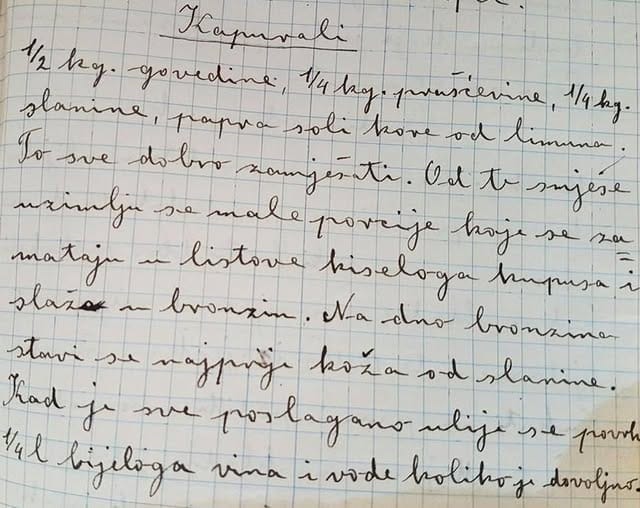 Kapurali
1/2 kg. govedine, 1/4 kg. pruščevine, 1/4 kg.
slanine, papra soli kore od limuna.
To sve dobro zamješati. Od te smješe
uzimlju se male porcije koje se za=
mataju u listove kiseloga kupusa i
slažu u bronzin. Na dno bronzina
stavi se najprije koža od slanine.
Kad je sve poslagano ulije se povrh
1/4 l bijeloga vina i vode koliko je dovoljno.